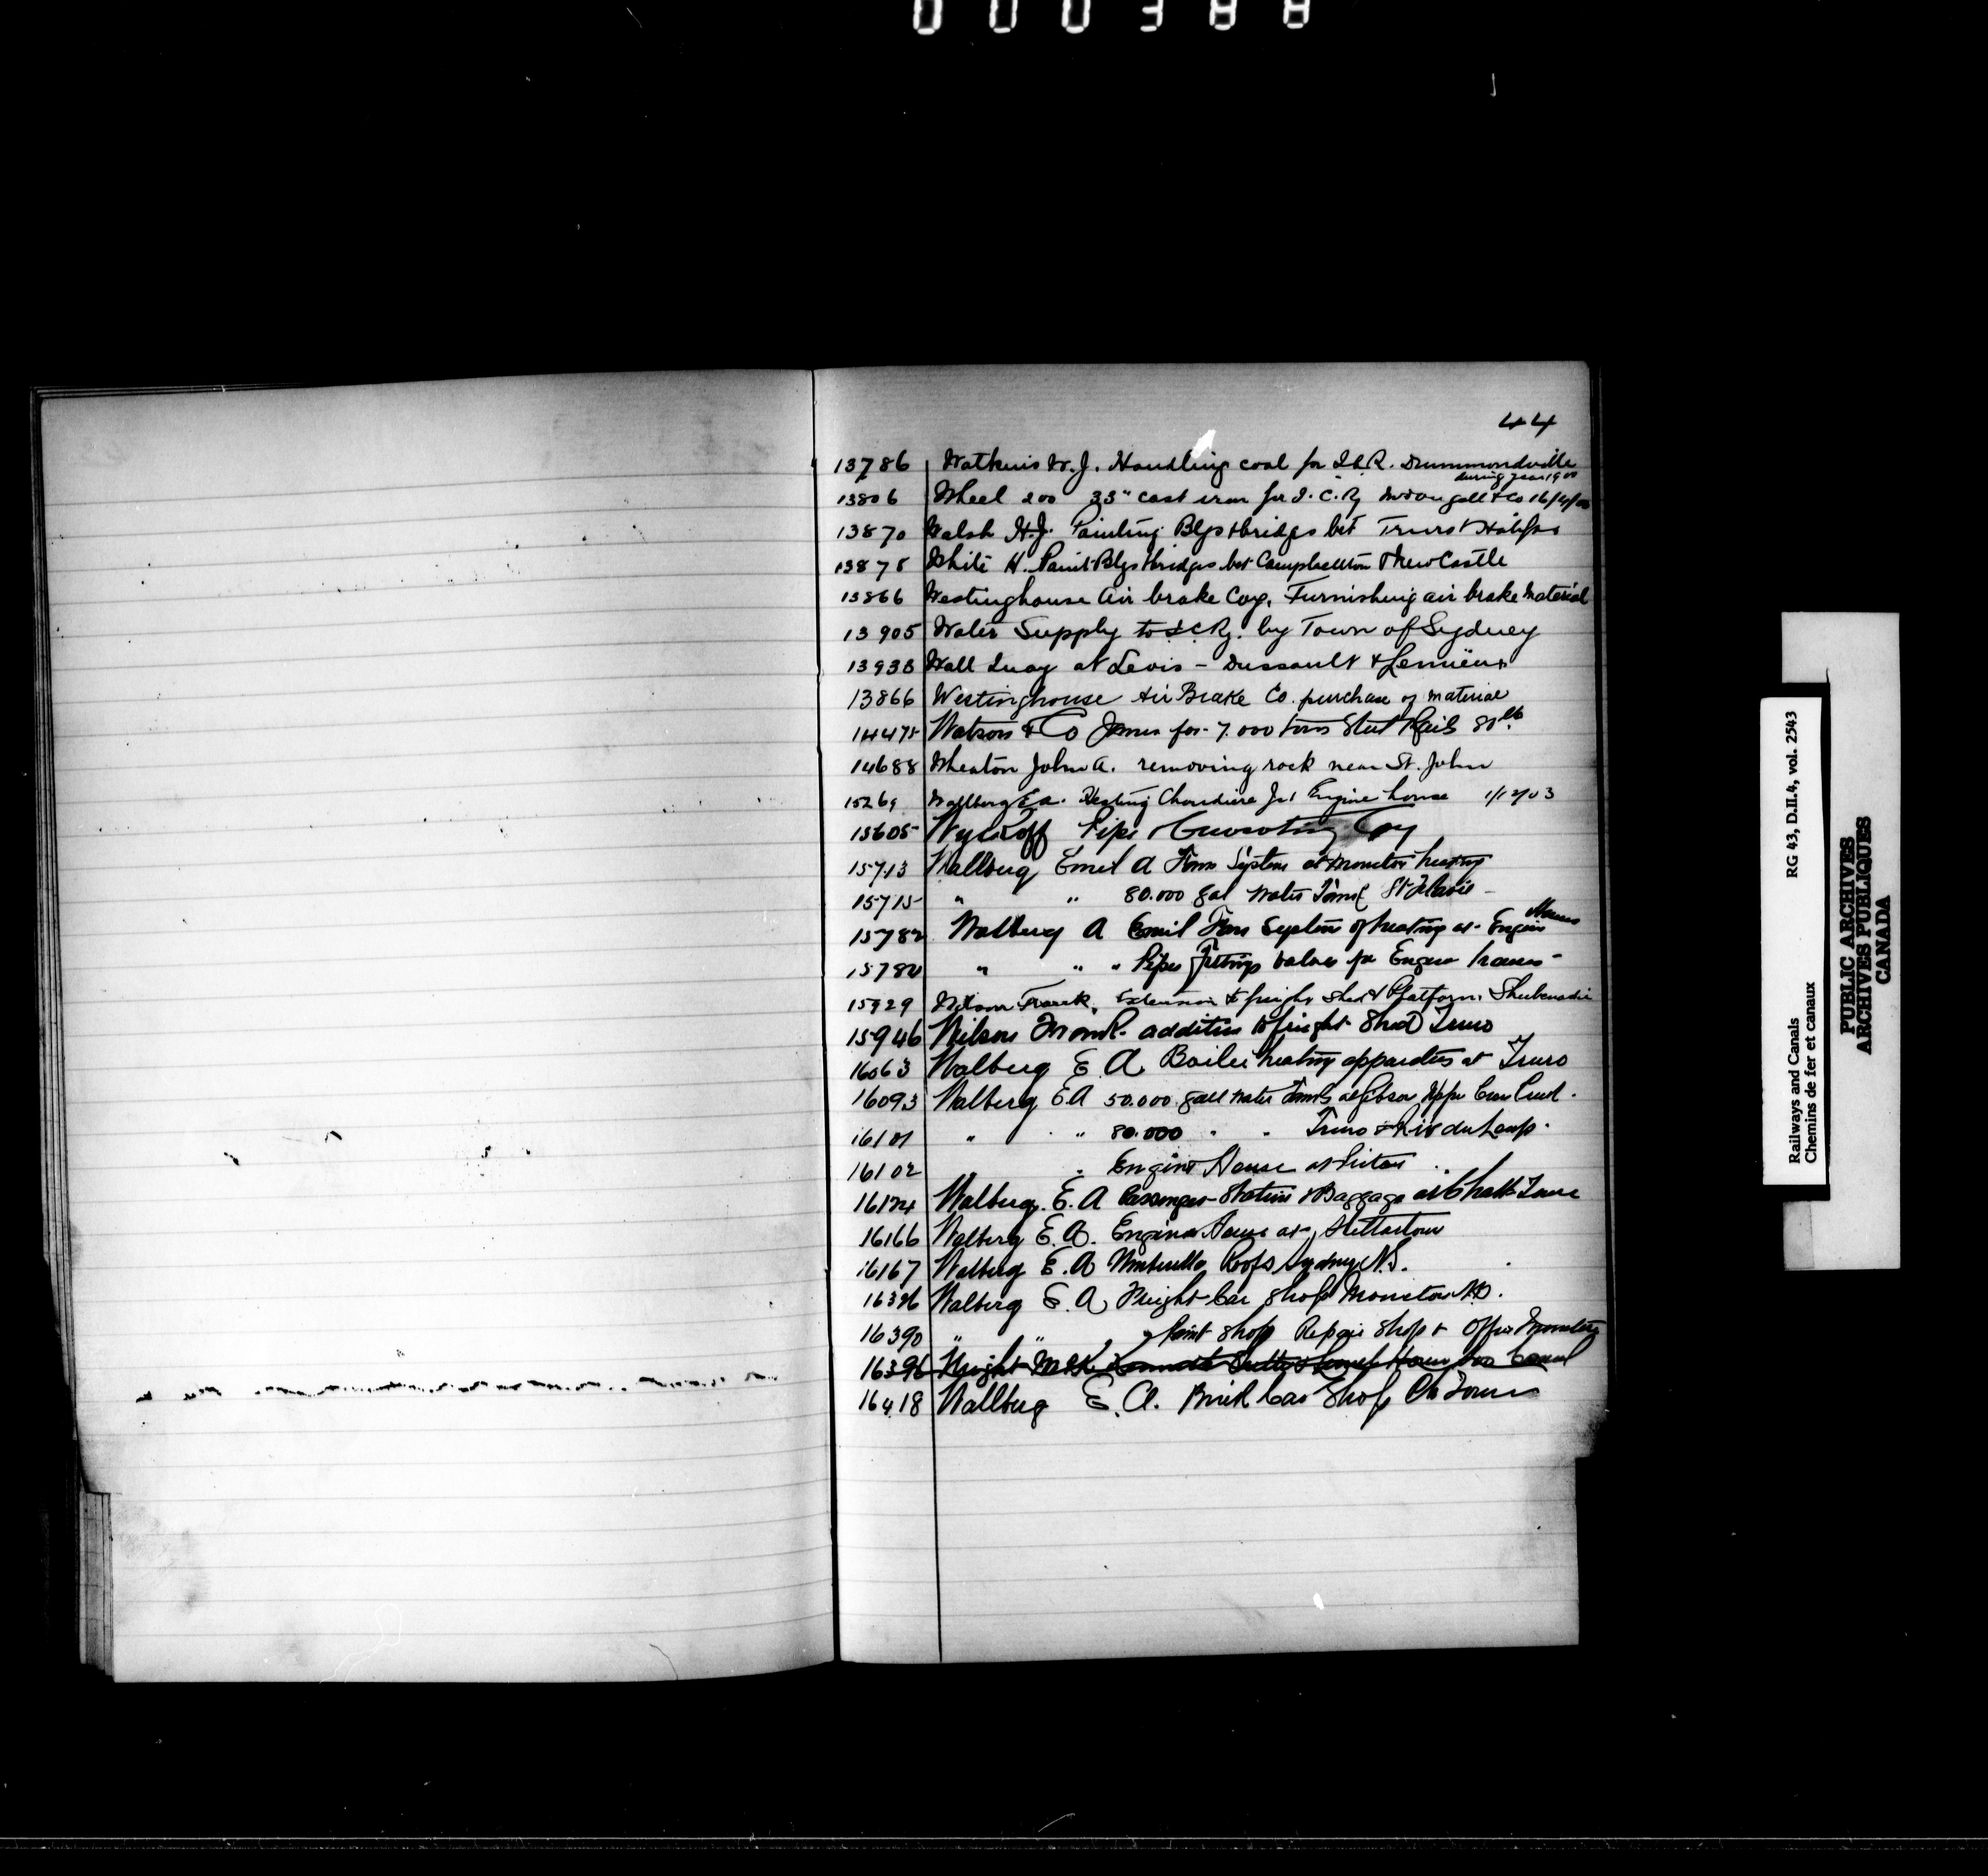 000388
44
13786 Watkins W. J. Handling coal for I.C.R. Drummondville
during year 1900
13806 Wheel 200 33" cast iron for I.C.Ry McDougall & Co 16/4/00
13870 Walsh H.J. Painting Blgs & bridges bet Truro & Halifax
13875 White H. Paint Blgs & bridges bet Campbellton & New Castle
13866 Westinghouse Air brake Coy. Furnishing air brake Material
13905 Water Supply to I.C.Ry. by Town of Sydney
13938 Wall Quay at Levis - Dussault & Lemieux
13866 Westinghouse Air Brake Co. purchase of material
14475 Watson & Co James for 7.000 tons Steel Rails 80 lb
14688 Wheaton John A. removing rock near St. John
15269 Wallberg E a. Heating Chaudiere Jct Engine house 1/12/03
15605 Wyckoff Pipe & Creosoting Coy
15713 Wallberg Emil A Fan System at Moncton heating
15715 " " 80.000 gal Water Tank St Flavie -
15782 Walberg A Emil Fan System of heating at Engine Houses
15784 " " " Pipes Fittings Valves for Engine houses -
15929 Wilson Frank, Extension to freight shed & Platform, Shubenadie
15946 Wilson Frank. addition to freight Shed Truro
16063 Walberg E. A Boiler heating apparatus at Truro
16093 Walberg E.A 50.000 gall water Tanks at Gibson Upper
16101 " " 80.000 " " Truro & Riv du Loup.
16102 " Engine House at Pictou
16124 Walberg. E. A Passenger Station & Baggage at
16166 Walberg E. A. Engine House at Stellarton
16167 Walberg E. A Umbrella Roofs Sydney N.S.
16376 Walberg E. A Freight Car Shop Moncton N.B.
16390 " " " Paint Shop Repair Shop & Office Moncton
16396 Wright Canal
16418 Wallberg E. A. Brick Car Shop
Railways and Canals RG 43, D.II.4, vol. 2543
Chemins de fer et canaux
PUBLIC ARCHIVES
ARCHIVES PUBLIQUES
CANADA